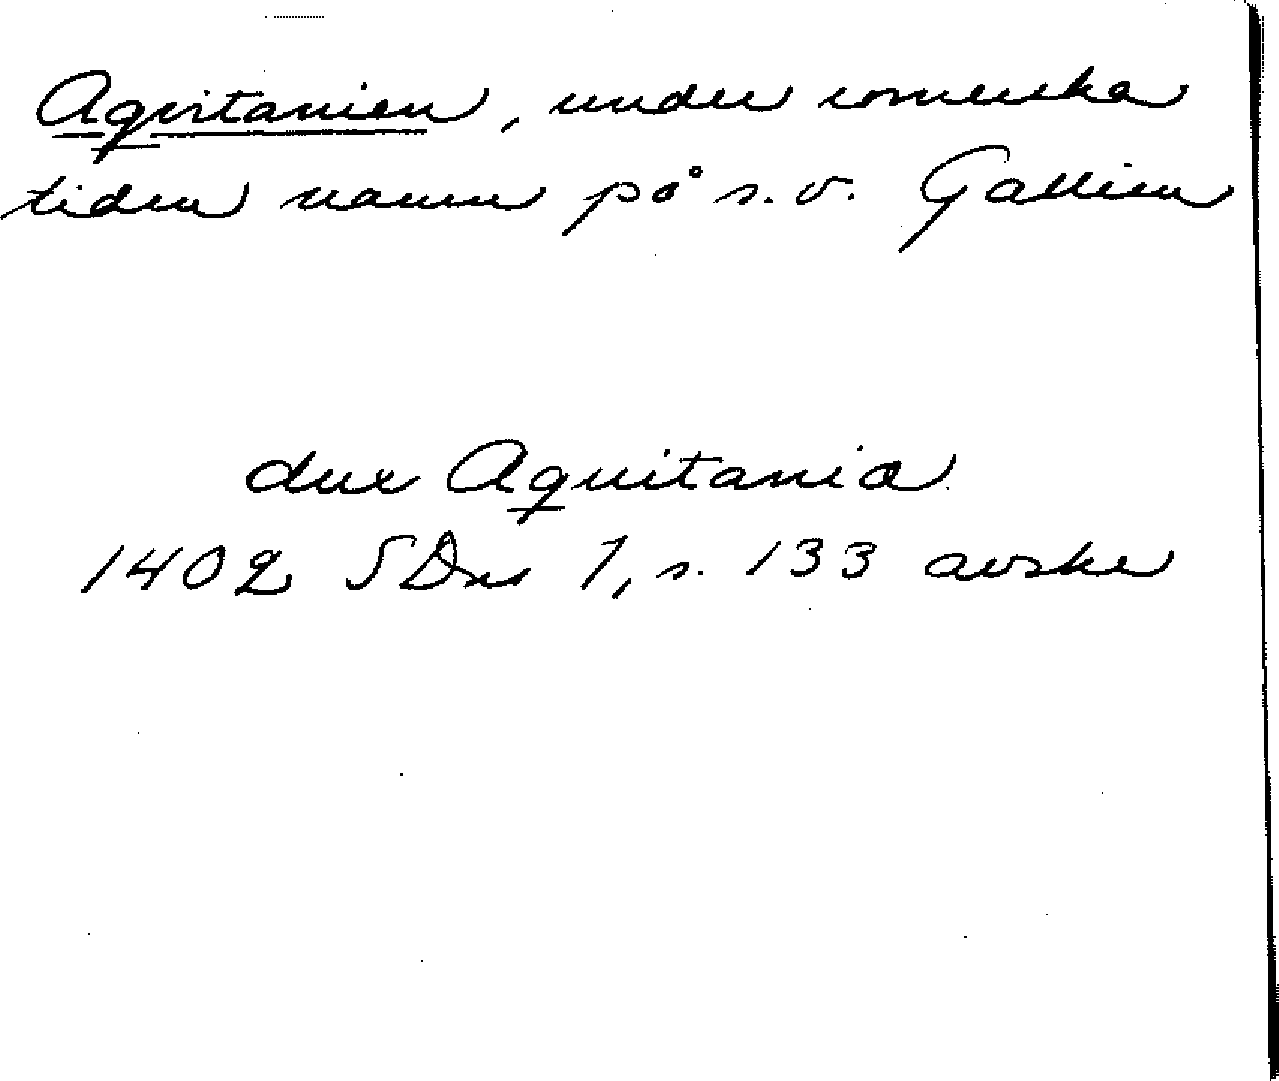 Aqvitanien, under romerska
tiden namn på s.v. Gallien
dux Aquitania
1402 SDns 1, s. 133 avskr